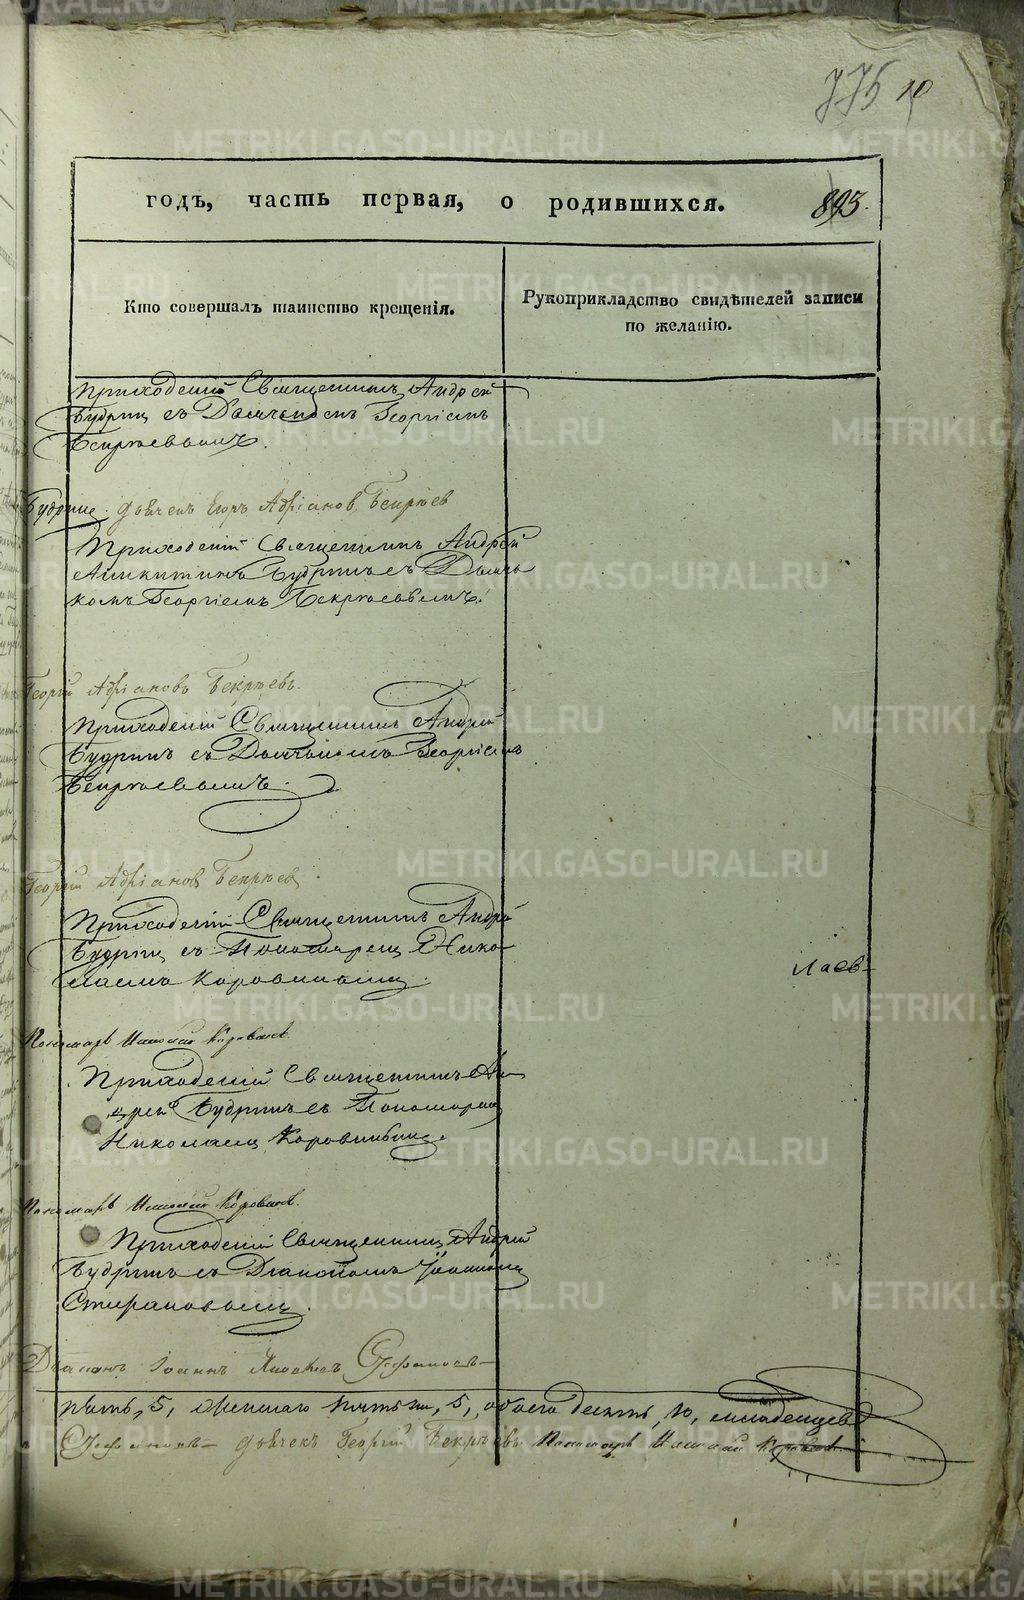 775 10
годъ, часть первая, о родившихся. 893.
Кто совершалъ таинство крещенія.
Рукоприкладство свидѣтелей записи
по желанію.
Приходскій Священникъ Андрей
Будринъ съ Дьячкомъ Георгіемъ
Бекряевымъ.
Будринъ. дьячекъ Егоръ Адріановъ Бекряев
Приходскій Священникъ Андрей
Аникитинъ Будринъ съ Дьяч-
комъ Георгіемъ Бекряевымъ.
Георгій Адріановъ Бекряевъ
Приходскій Священникъ Андрей
Будринъ съ Дьячкомъ Георгіемъ
Бекряевымъ.
Георгій Адріановъ Бекряевъ.
Приходскій Священникъ Андрей
Будринъ съ Пономаремъ Нико-
лаемъ Коровинымъ.
Пономарь Николай Коровинъ
Приходскій Священникъ Ан-
дрей Будринъ съ Пономаремъ
Николаемъ Коровинымъ.
Пономарь Николай Коровинъ.
Приходскій Священникъ Андрей
Будринъ съ Діакономъ Іоанномъ
Стефановымъ.
Діаконъ Іоаннъ Стефановъ
пять, 5, женскаго пять, 5, обоего десять, 10, младенцевъ
Стефановъ дьячекъ Георгій Бекряевъ Пономарь Николай Коровинъ